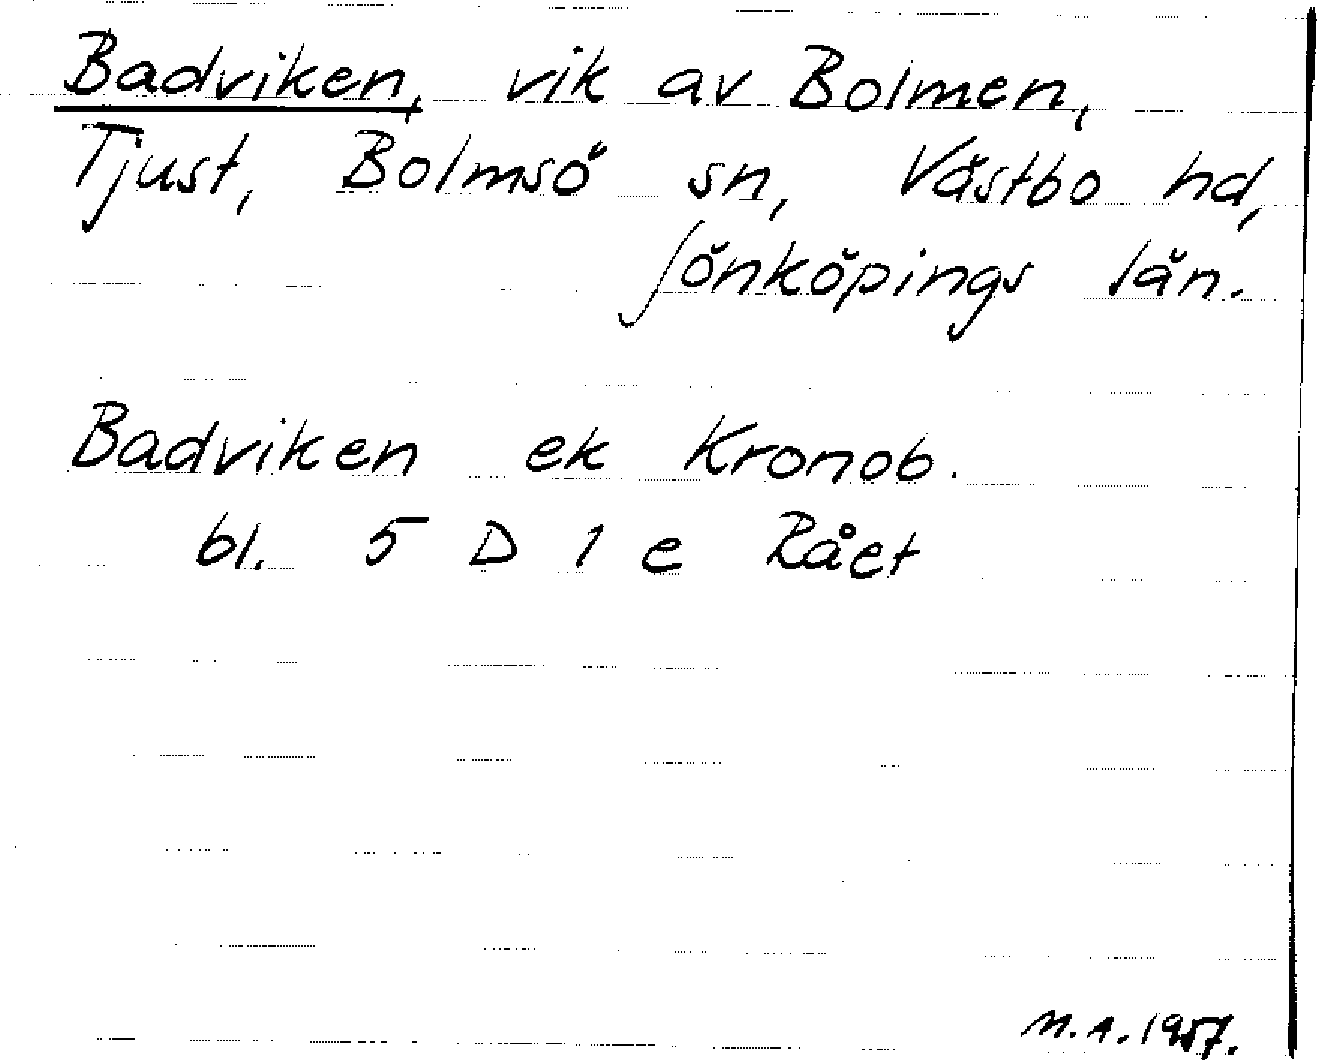 Badviken, vik av Bolmen,
Tjust, Bolmsö sn, Västbo hd,
Jönköpings län.
Badviken ek Kronob.
bl. 5 D 1 e Rået
M.A. 1957.